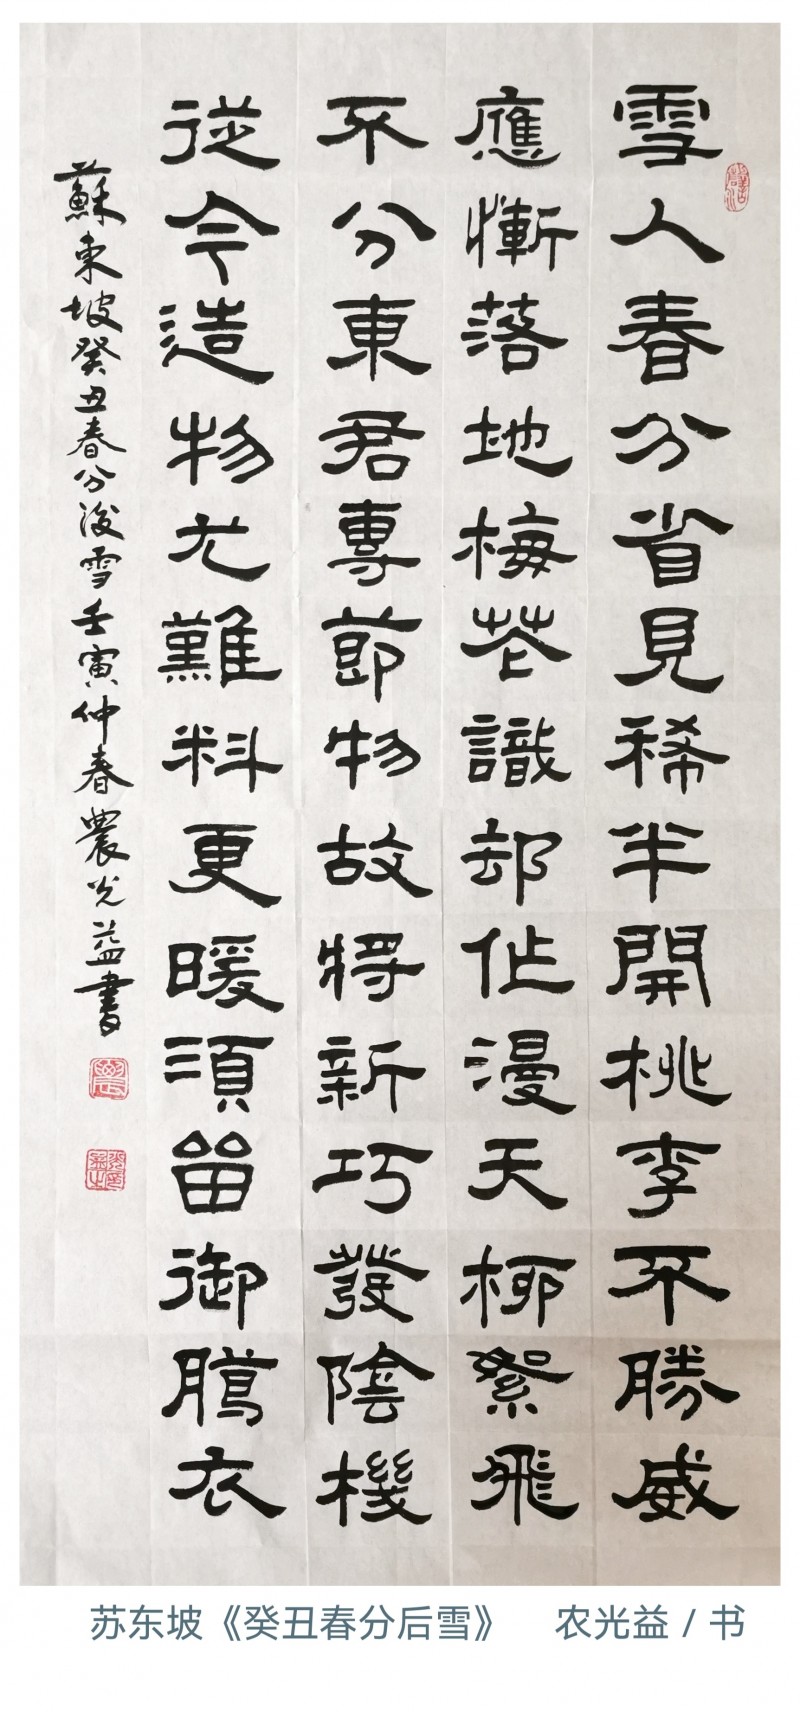 雪入春分省見稀半開桃李不勝威
應慚落地梅花識却作漫天柳絮飛
不分東君專節物故將新巧發陰機
從今造物尤難料更暖須留御臈衣
蘇東坡癸丑春分後雪壬寅仲春農光益書
苏东坡《癸丑春分后雪》 农光益 / 书